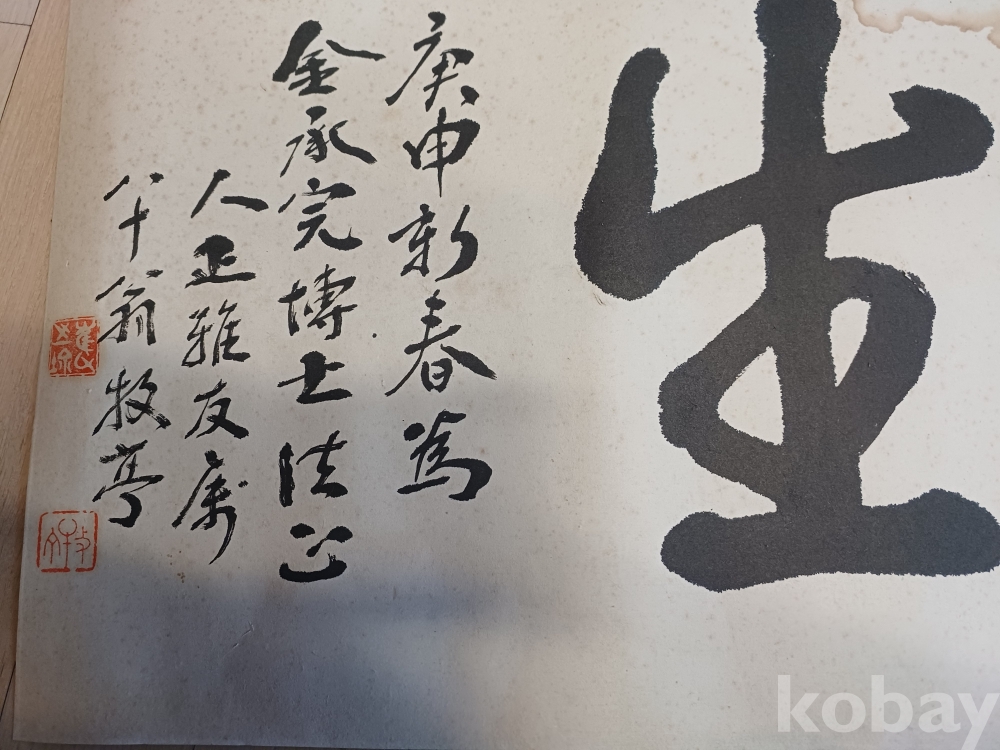 生
庚申新春為
金承完博士法正
人正雅友属
八十翁牧亭
kobay